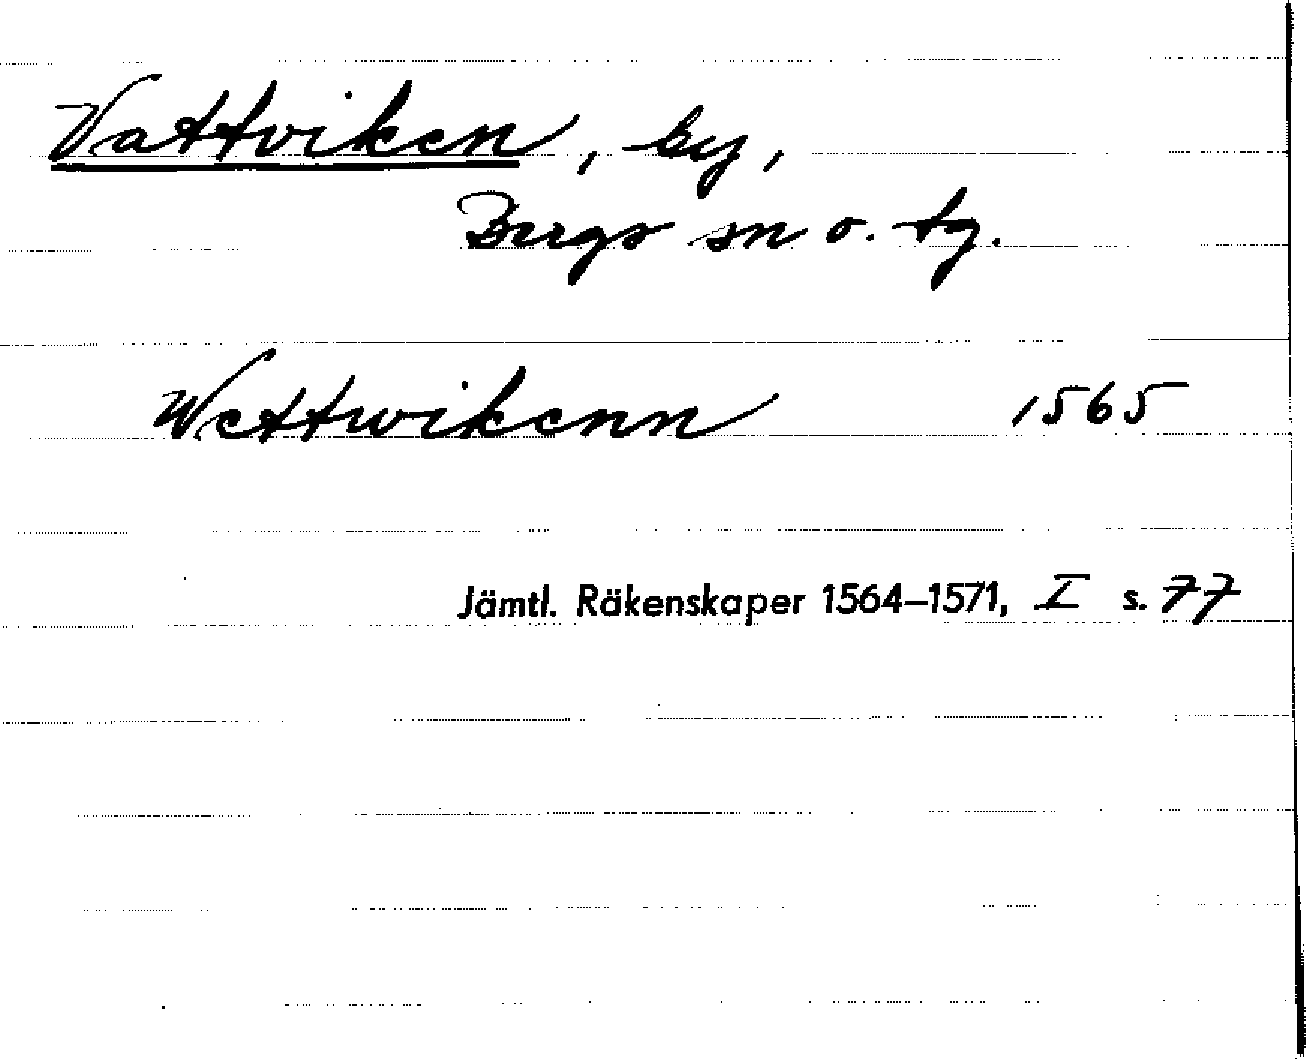 Vattviken, by,
Bergs sn o. tg.
Wettwikenn 1565
Jämtl. Räkenskaper 1564–1571, I s. 77